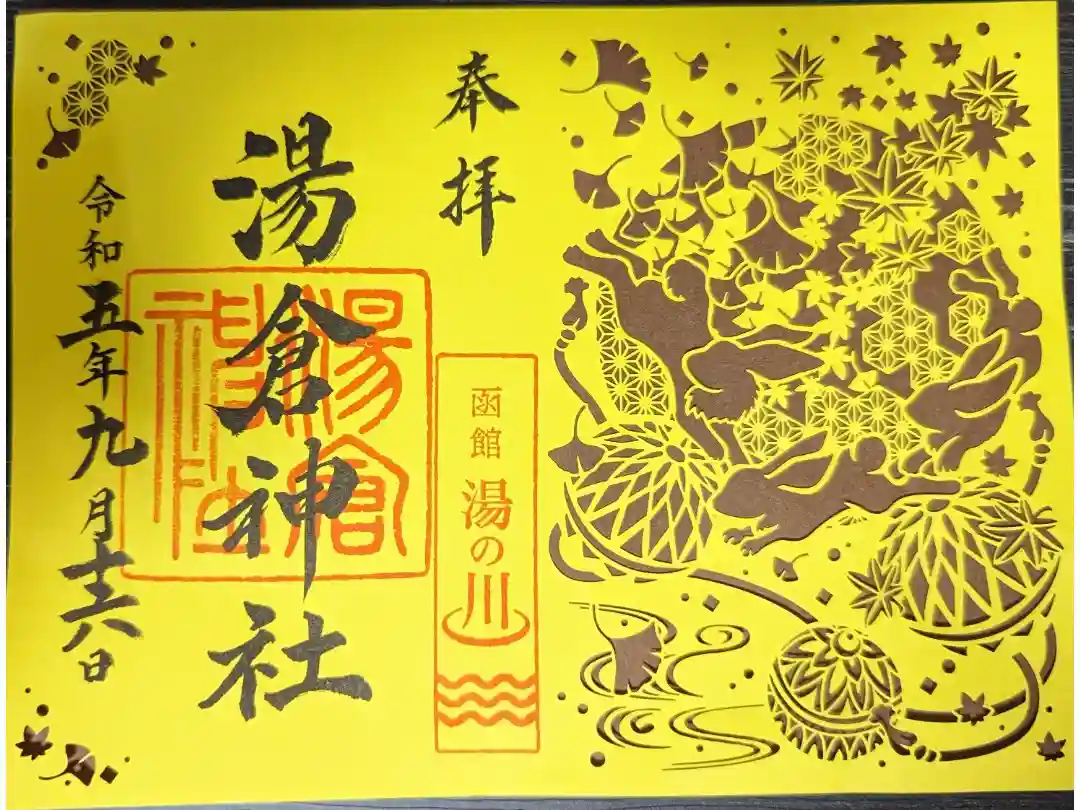 奉拝
湯倉神社
函館 湯の川
湯倉神社
令和五年九月十六日